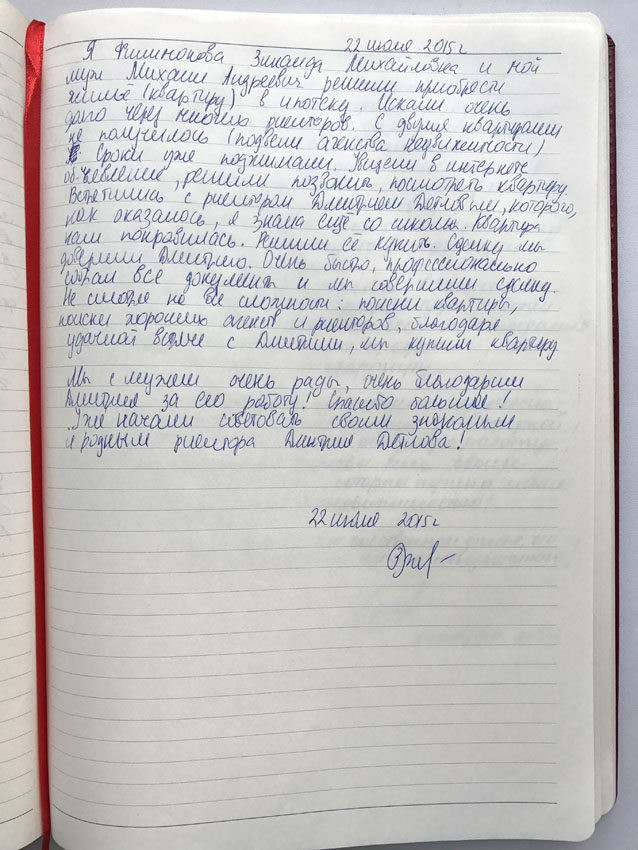 22 июля 2015 г
Я Филимонова Зинаида Михайловна и мой
муж Михаил Андреевич решили приобрести
жильё (квартиру) в ипотеку. Искали очень
долго через многих риелторов. С двумя квартирами
не получилось (подвели агенства недвижимости)
Сроки уже поджимали. Увидели в интернете
объявление, решили позвонить, посмотреть квартиру.
Встретились с риелтором Дмитрием Детловым, которого,
как оказалось, я знала ещё со школы. Квартира
нам понравилась. Решили её купить. Сделку мы
доверили Дмитрию. Очень быстро, профессионально
собрал все документы и мы совершили сделку.
Не смотря на все сложности: поиски квартиры,
поиски хороших агенств и риелторов, благодаря
удачной встрече с Дмитрием, мы купили квартиру
Мы с мужем очень рады, очень благодарим
Дмитрия за его работу! Спасибо большое!
Уже начали советовать своим знакомым
и родным риелтора Дмитрия Детлова!
22 июля 2015 г